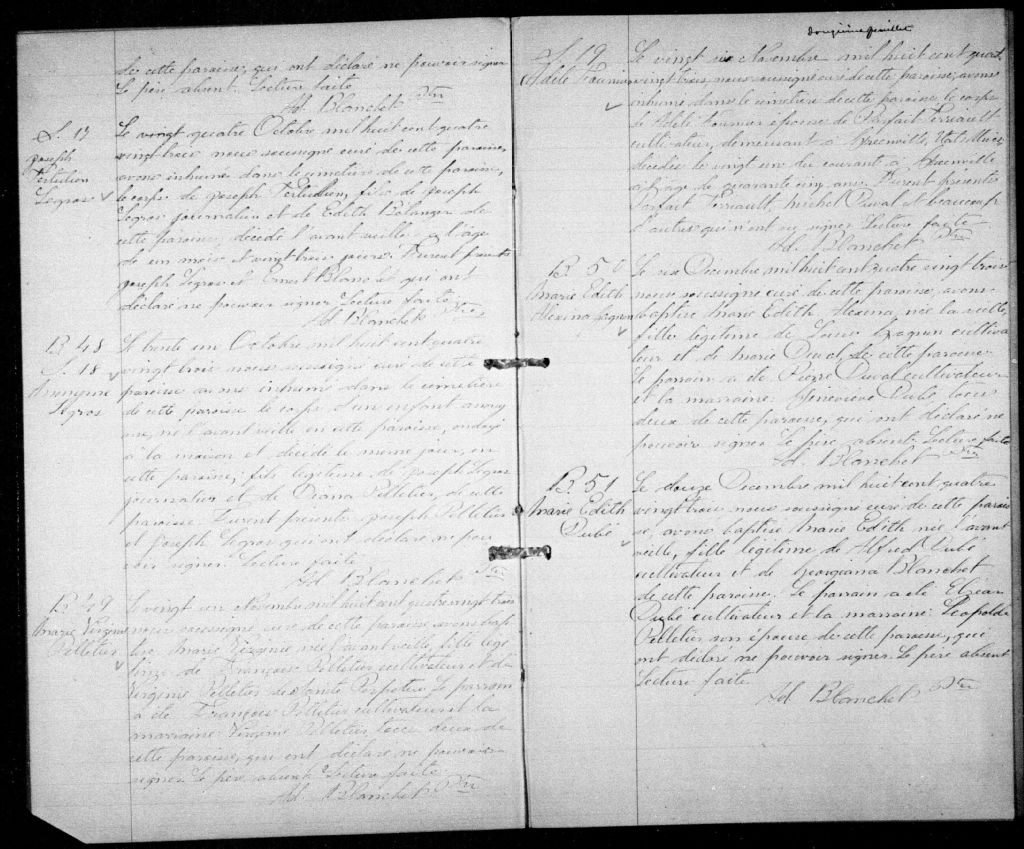 de cette paroisse, qui ont déclaré ne pouvoir signer
Le père absent. Lecture faite
Ad. Blanchet Ptre
S. 17
Joseph
Tertulien
Legros
Le vingt quatre Octobre mil huit cent quatre
vingt trois nous soussigné curé de cette paroisse,
avons inhumé dans le cimetière de cette paroisse,
le corps de Joseph Tertulien, fils de Joseph
Legros journalier et de Edith Bélanger de
cette paroisse, décédé l'avant veille à l'âge
de un mois et vingt trois jours. Furent présents
Joseph Legros et Ernest Blanchet qui ont
déclaré ne pouvoir signer Lecture faite
Ad Blanchet Ptre
B 48
S. 18
Anonyme
Legros
Le trente un Octobre mil huit cent quatre
vingt trois nous soussigné curé de cette
paroisse avons inhumé dans le cimetière
de cette paroisse le corps d'un enfant anony
me, né l'avant veille en cette paroisse, ondoyé
à la maison et décédé le même jour, en
cette paroisse, fils légitime de Joseph Legros
journalier et de Diana Pelletier, de cette
paroisse. Furent présents Joseph Pelletier
et Joseph Legros qui ont déclaré ne pou
voir signer Lecture faite
Ad. Blanchet Ptre
B 49
Marie Virginie
Pelletier
Le vingt un Novembre mil huit cent quatre vingt trois
nous soussigné curé de cette paroisse avons bap
tisé Marie Virginie née l'avant veille, fille légi
time de François Pelletier cultivateur et de
Virginie Pelletier de Sainte Perpétue Le parrain
a été François Pelletier cultivateur et la
marraine Virginie Pelletier, tous deux de
cette paroisse, qui ont déclaré ne pouvoir
signer Le père absent Lecture faite
Ad. Blanchet Ptre
douzième feuillet
S. 19
Adèle Fournier
Le vingt six Novembre mil huit cent quatre
vingt trois, nous soussigné curé de cette paroisse, avons
inhumé dans le cimetière de cette paroisse, le corps
de Adèle Fournier épouse de Parfait Perreault
cultivateur, demeurant à Greenville, Etats Unis,
décédée le vingt un du courant à Greenville
à l'âge de quarante cinq ans. Furent présents
Parfait Perreault, Michel Duval et beaucoup
d'autres qui n'ont su signer Lecture faite
Ad. Blanchet Ptre
B. 50
Marie Edith
Alexina Gagnon
Le six Decembre mil huit cent quatre vingt trois
nous soussigné curé de cette paroisse, avons
baptisé Marie Edith Alexina, née la veille,
fille légitime de Louis Gagnon cultiva
teur et de Marie Duval, de cette paroisse
Le parrain a été Pierre Duval cultivateur
et la marraine: Geneviève Dubé, tous
deux de cette paroisse, qui ont déclaré ne
pouvoir signer Le père absent Lecture faite
Ad. Blanchet Ptre
B. 51
Marie Edith
Dubé
Le douze Decembre mil huit cent quatre
vingt trois, nous soussigné curé de cette parois
se, avons baptisé Marie Edith née l'avant
veille, fille légitime de Alfred Dubé
cultivateur et de Georgiana Blanchet
de cette paroisse. Le parrain a été Elzéar
Dubé cultivateur et la marraine: Léopolde
Pelletier son épouse de cette paroisse, qui
ont déclaré ne pouvoir signer. Le père absent
Lecture faite
Ad Blanchet Ptre